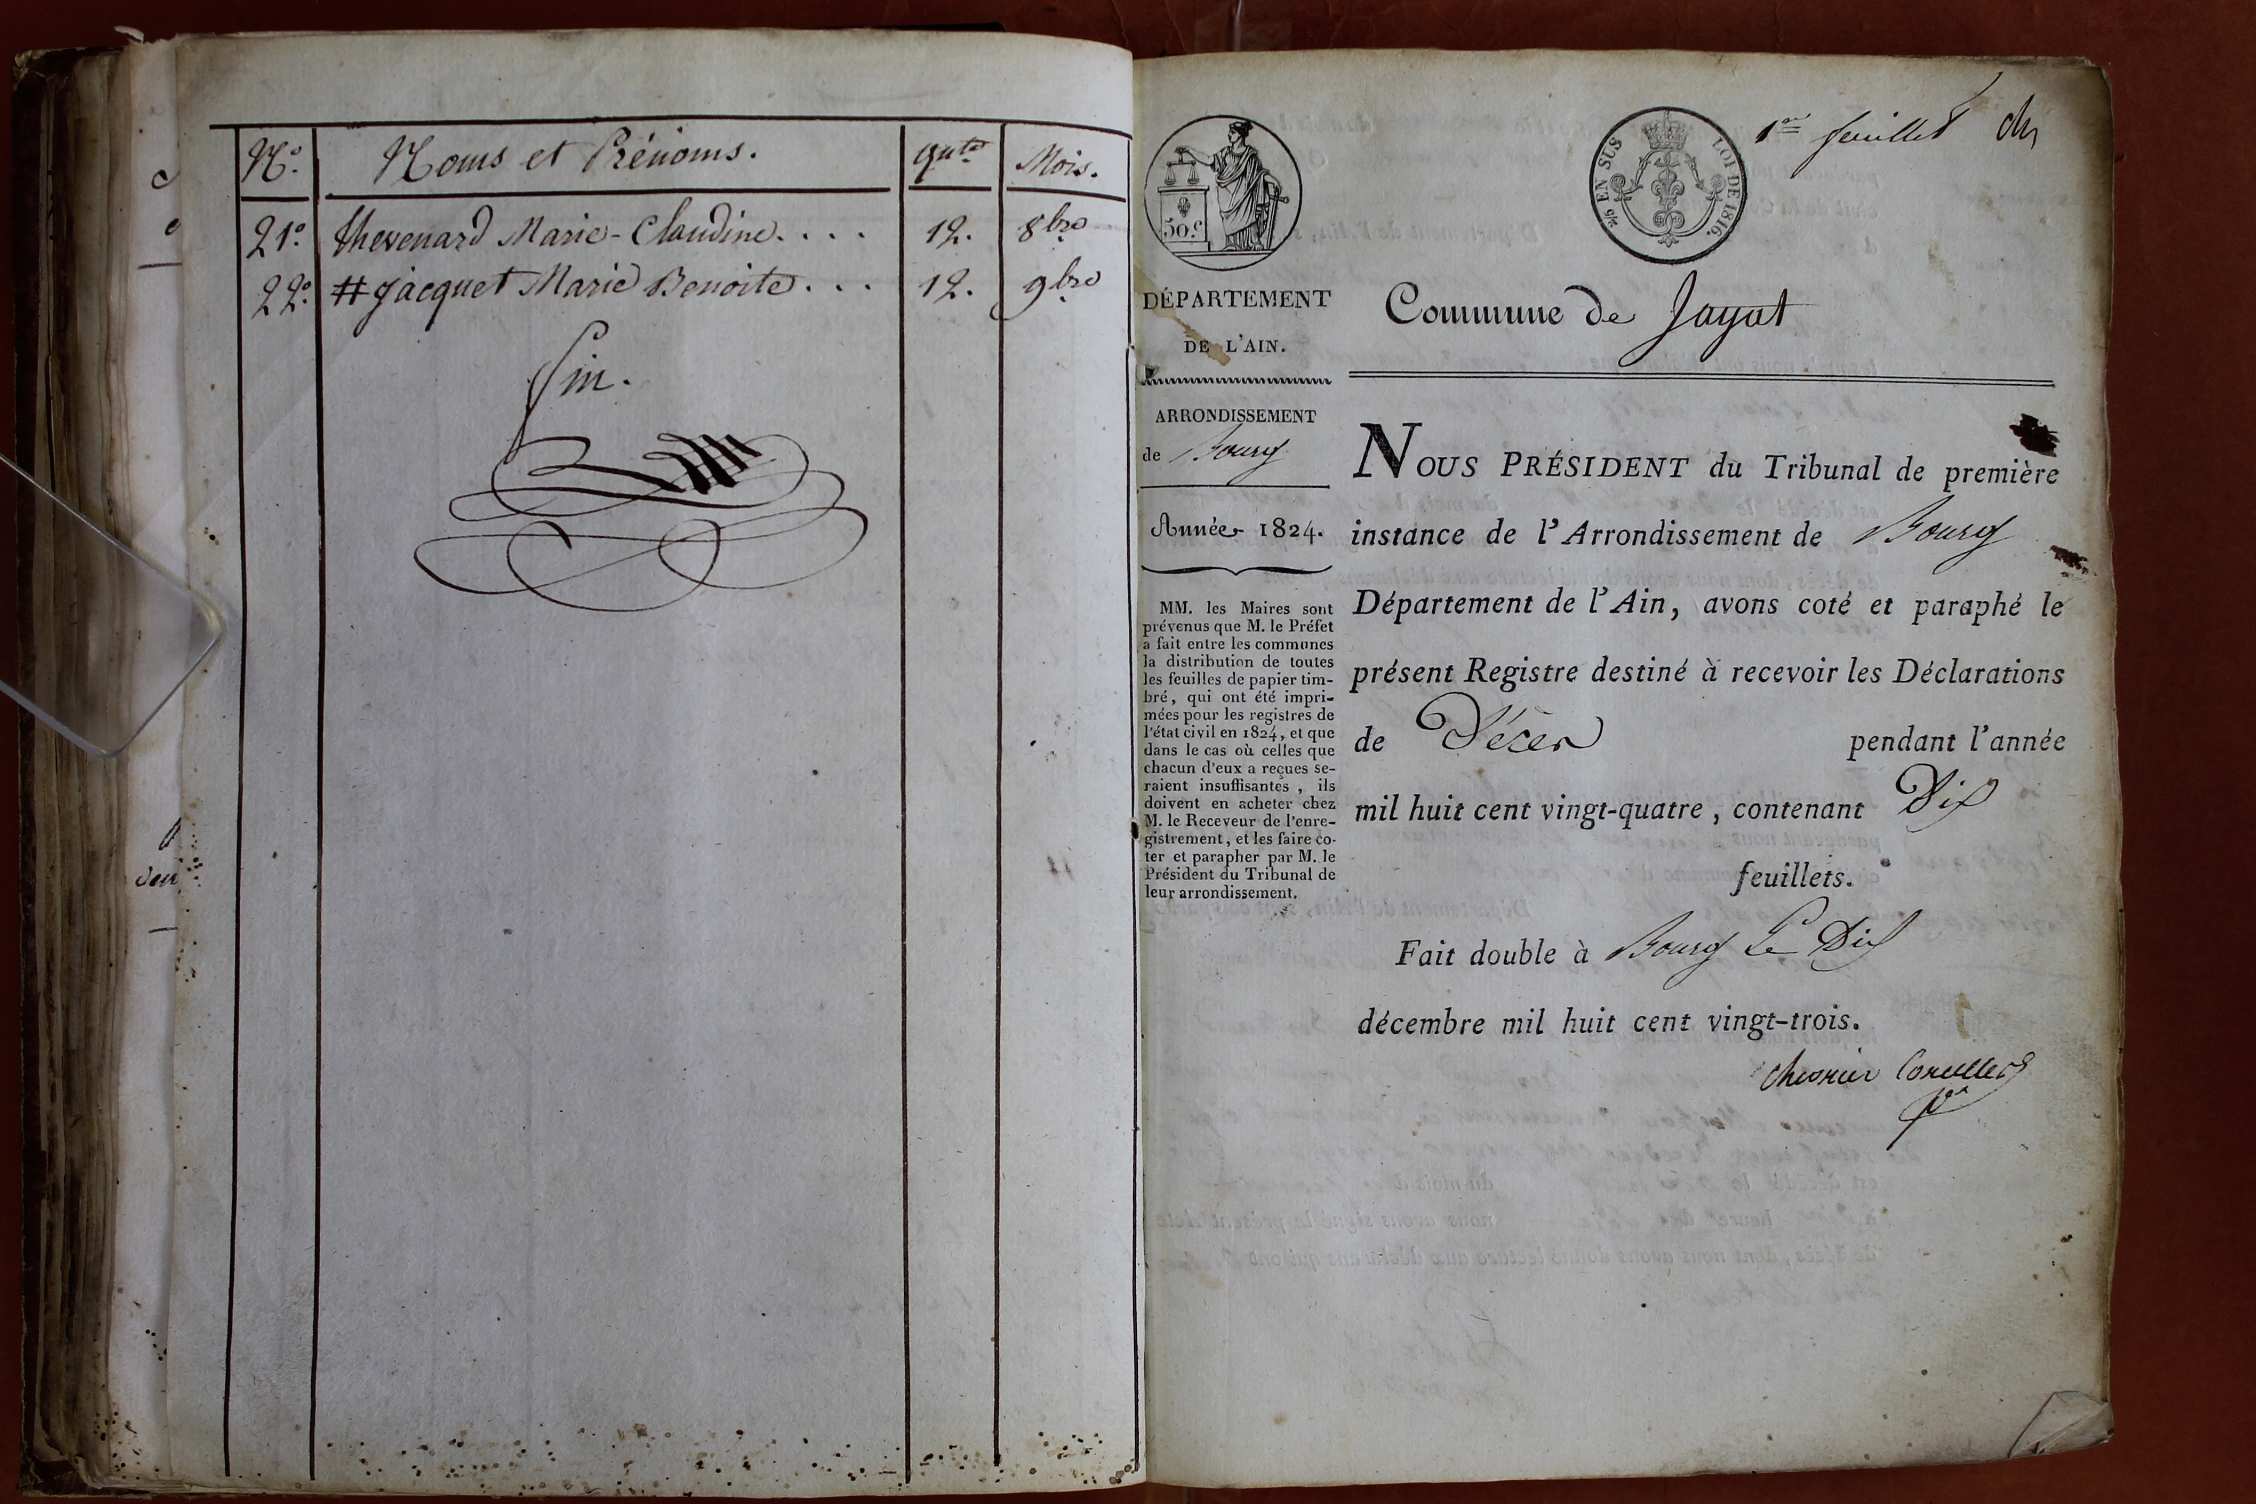 N.o Noms et Prénoms. qnte Mois.
21.o thevenard Marie-Claudine. . . . 12. 8bre
22.o # Jacquet Marie Benoite. . . . 12. 9bre
fin.
1er feuillet
50.C
EN SUS LOI DE 1816.
DÉPARTEMENT
DE L'AIN.
ARRONDISSEMENT
de Bourg
Année 1824.
MM. les Maires sont
prévenus que M. le Préfet
a fait entre les communes
la distribution de toutes
les feuilles de papier tim-
bré, qui ont été impri-
mées pour les registres de
l'état civil en 1824, et que
dans le cas où celles que
chacun d'eux a reçues se-
raient insuffisantes, ils
doivent en acheter chez
M. le Receveur de l'enre-
gistrement, et les faire co-
ter et parapher par M. le
Président du Tribunal de
leur arrondissement.
Commune de Jayat
NOUS PRÉSIDENT du Tribunal de première
instance de l'Arrondissement de Bourg
Département de l'Ain, avons coté et paraphé le
présent Registre destiné à recevoir les Déclarations
de Décès pendant l'année
mil huit cent vingt-quatre, contenant Dix
feuillets.
Fait double à Bourg Le Dix
décembre mil huit cent vingt-trois.